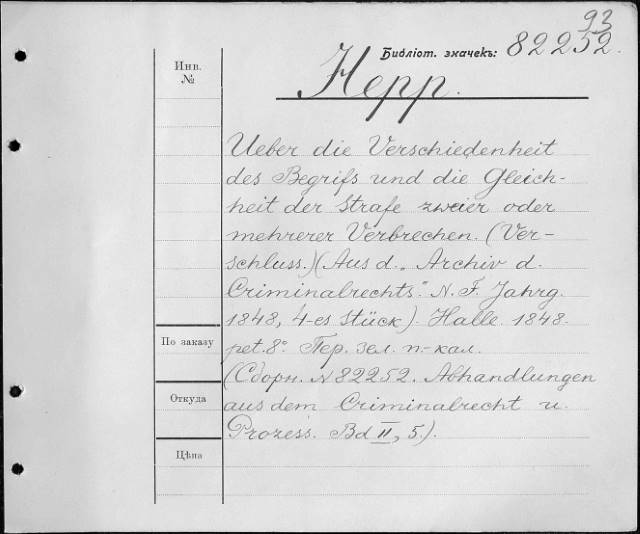 93
Библіот. значекъ: 82252.
Инв.
№
Hepp.
Ueber die Verschiedenheit
des Begrifs und die Gleich-
heit der Strafe zweier oder
mehrerer Verbrechen. (Ver-
schluss.) (Aus d. „Archiv d.
Criminalrechts“. N. F. Jahrg.
1848, 4-es Stück). Halle. 1848.
pet. 8° Пер. зел. п-кал.
(Сборн. № 82252. Abhandlungen
aus dem Criminalrecht u.
Prozess. Bd II, 5.).
По заказу
Откуда
Цѣна